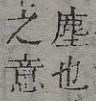 塵也
之意